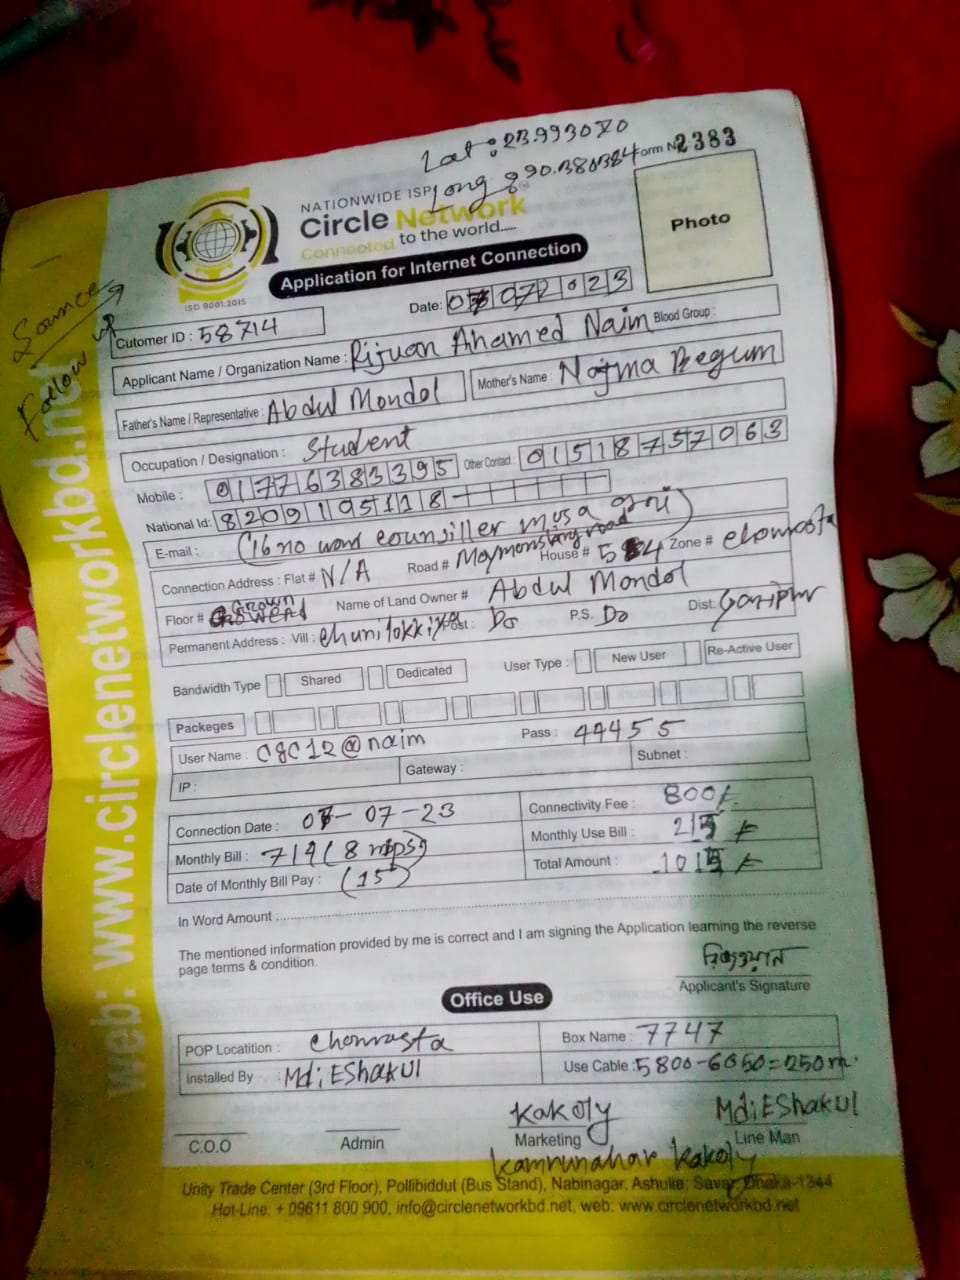 Lat: 23.993070
Long: 90.380384 Form No 2383
NATIONWIDE ISP
Circle Network
Connected to the world.....
ISO 9001:2015
Application for Internet Connection
Photo
Source
Follow up
Date: 07 07 2023
Cutomer ID : 58714
Applicant Name / Organization Name : Rijuan Ahamed Naim Blood Group :
Father's Name / Representative : Abdul Mondol Mother's Name : Najma Begum
Occupation / Designation : Student
Mobile : 01776383395 Other Contact : 01518757063
National Id: 8209119511 8
E-mail : (16 no word counsiller musa
Connection Address : Flat # N/A Road # Maymonsing road House # 584 Zone # chowrasta
Floor # Grown Name of Land Owner # Abdul Mondol
Permanent Address : Vill : Post : Do P.S. Do Dist: Gazipur
Bandwidth Type Shared Dedicated User Type : New User Re-Active User
Packeges
User Name : cgc12@naim Pass : 44455
IP : Gateway : Subnet :
Connection Date : 07-07-23 Connectivity Fee : 800/-
Monthly Bill : 714 (8 mbps) Monthly Use Bill : 215
Date of Monthly Bill Pay : (15) Total Amount : 1015
In Word Amount :
The mentioned information provided by me is correct and I am signing the Application learning the reverse
page terms & condition.
Applicant's Signature
Office Use
POP Locatition : chowrasta Box Name : 7747
Installed By : Md: EShakul Use Cable : 5800-6050=250m.
Kakoly Md: EShakul
C.O.O Admin Marketing Line Man
Kamrunahar Kakoly
Unity Trade Center (3rd Floor), Pollibiddut (Bus Stand), Nabinagar, Ashulia, Savar, Dhaka-1344
Hot-Line: + 09611 800 900, info@circlenetworkbd.net, web: www.circlenetworkbd.net
web: www.circlenetworkbd.net